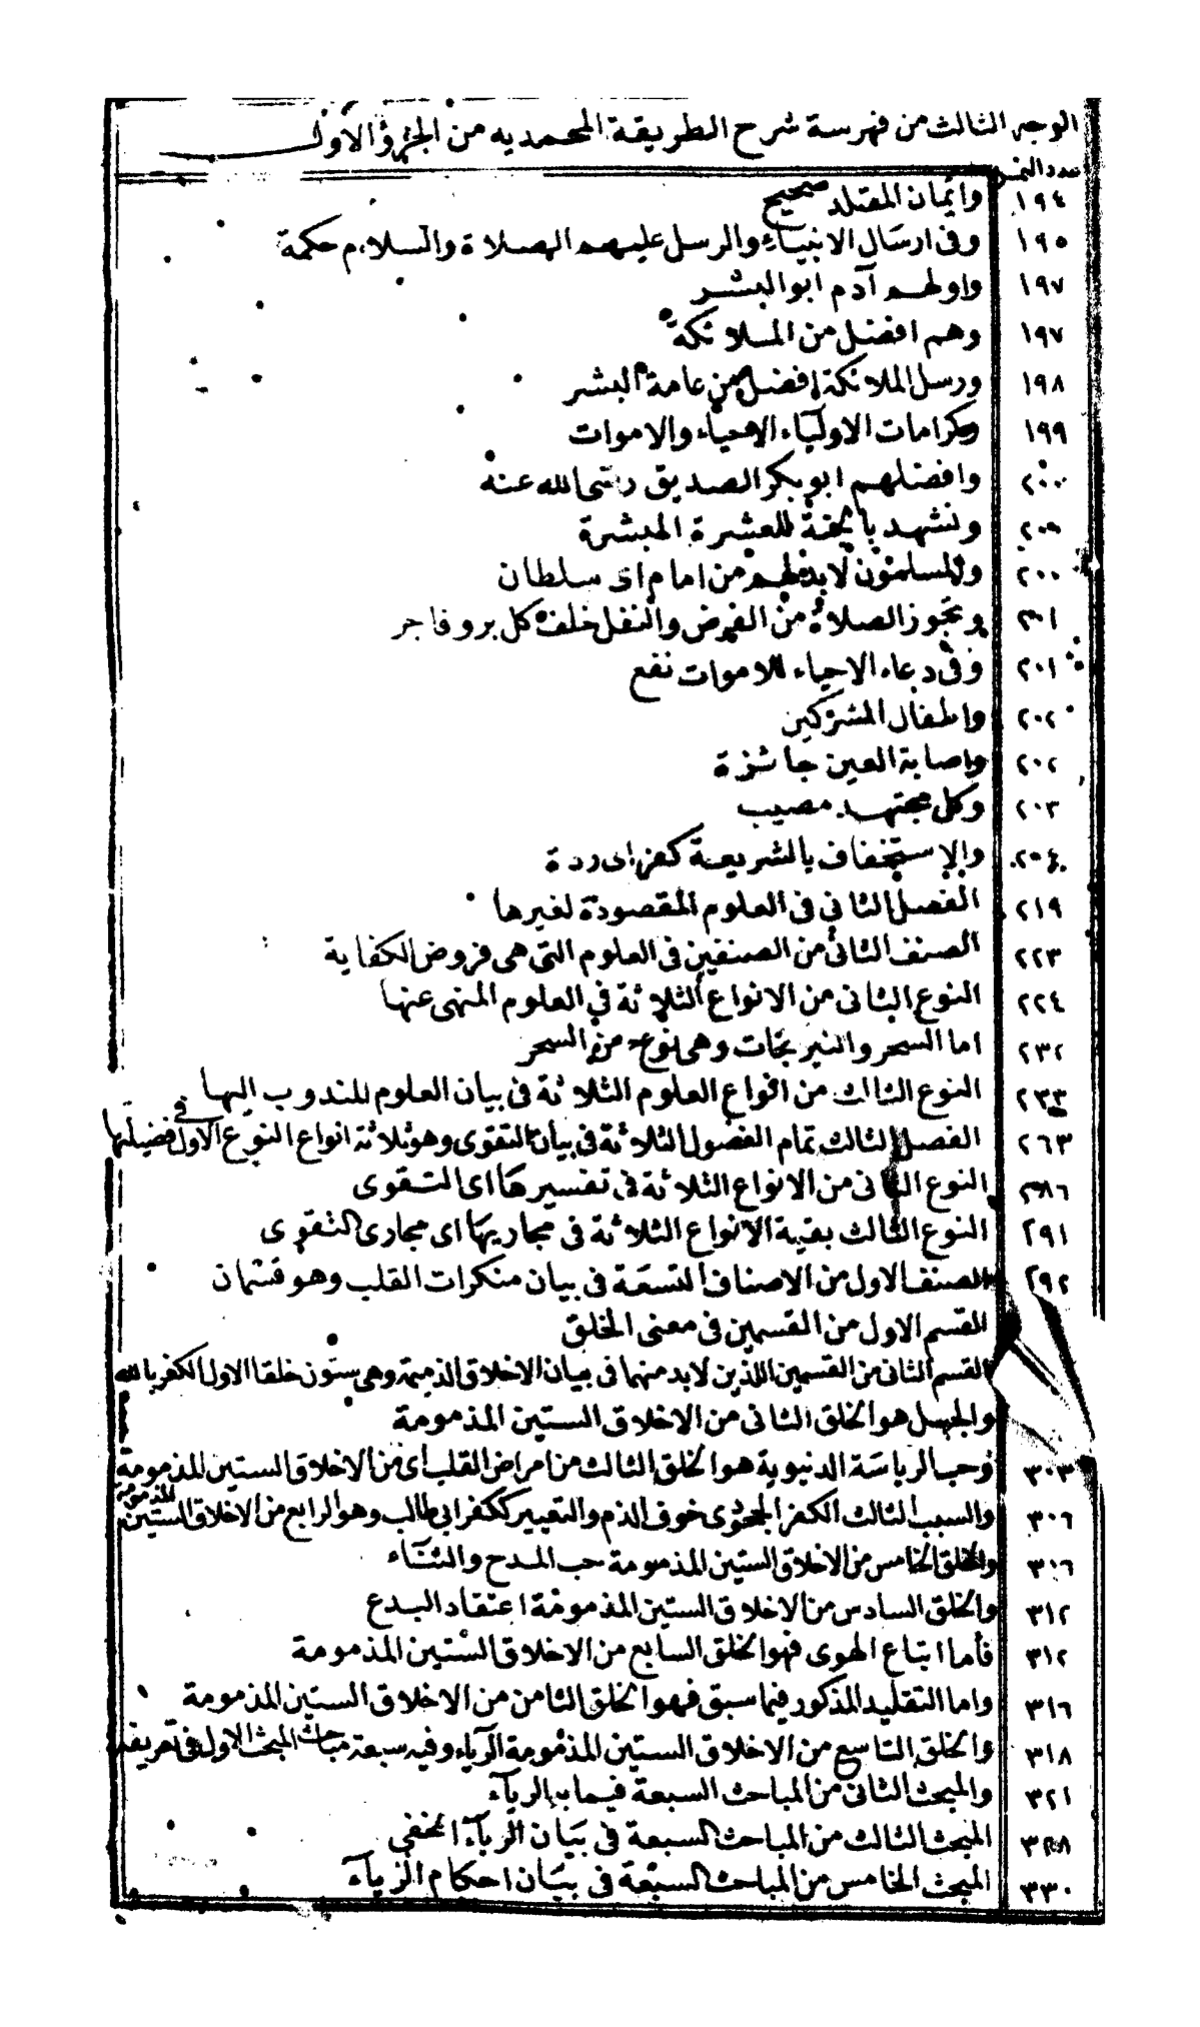 الوجه الثالث من فهرسة شرح الطريقة المحمديه من الجزؤ الاول
عدد النمر
١٩٤ وايمان المقلد صحيح
١٩٥ وفى ارسال الانبياء والرسل عليهم الصلاة والسلام حكمة
١٩٧ واولهم آدم ابو البشر
١٩٧ وهم افضل من الملائكة
١٩٨ ورسل الملائكة افضل من عامة البشر
١٩٩ وكرامات الاولياء الاحياء والاموات
٢٠٠ وافضلهم ابوبكر الصديق رضى الله عنه
ونشهد بالجنة للعشرة المبشرة
٢٠٠ والمسلمون لابد لهم من امام اى سلطان
٢٠١ وتجوز الصلاة من الفرض والنفل خلف كل بر وفاجر
٢٠١ وفى دعاء الاحياء للاموات نفع
٢٠٢ واطفال المشركين
٢٠٢ واصابة العين جائزة
٢٠٣ وكل مجتهد مصيب
٢٠٤ والاستخفاف بالشريعة كفر اى ردة
٢١٩ الفصل الثانى فى العلوم المقصودة لغيرها
٢٢٣ الصنف الثانى من الصنفين فى العلوم التى هى فروض الكفاية
٢٢٤ النوع الثانى من الانواع الثلاثة فى العلوم المنهى عنها
٢٣٢ اما السحر والنيرنجات وهى نوع من السحر
٢٣٣ النوع الثالث من انواع العلوم الثلاثة فى بيان العلوم المندوب اليها
٢٦٣ الفصل الثالث تمام الفصول الثلاثة فى بيان التقوى وهو ثلاثة انواع النوع الاول فى فضيلتها
٢٨٦ النوع الثانى من الانواع الثلاثة فى تفسيرها اى التقوى
٢٩١ النوع الثالث بقية الانواع الثلاثة فى مجاريها اى مجارى التقوى
٢٩٢ الصنف الاول من الاصناف التسعة فى بيان منكرات القلب وهو قسمان
القسم الاول من القسمين فى معنى الخلق
القسم الثانى من القسمين اللذين لابد منهما فى بيان الاخلاق الذميمة وهى ستون خلقا الاول الكفر بالله
والجهل هو الخلق الثانى من الاخلاق الستين المذمومة
٣٠٣ وحب الرياسة الدنيوية هو الخلق الثالث من امراض القلب اى من الاخلاق الستين المذمومة
٣٠٦ والسبب الثالث الكفر الجحودى خوف الذم والتعيير ككفر ابى طالب وهو الرابع من الاخلاق الستين المذمومة
٣٠٦ والخلق الخامس من الاخلاق الستين المذمومة حب المدح والثناء
٣١٢ والخلق السادس من الاخلاق الستين المذمومة اعتقاد البدع
٣١٢ فأما اتباع الهوى فهو الخلق السابع من الاخلاق الستين المذمومة
٣١٦ واما التقليد المذكور فيما سبق فهو الخلق الثامن من الاخلاق الستين المذمومة
٣١٨ والخلق التاسع من الاخلاق الستين المذمومة الرياء وفيه سبعة مباحث المبحث الاول فى تعريفه
٣٢١ والمبحث الثانى من المباحث السبعة فيما به الرياء
٣٢٨ المبحث الثالث من المباحث السبعة فى بيان الرياء الخفى
٣٣٠ المبحث الخامس من المباحث السبعة فى بيان احكام الرياء